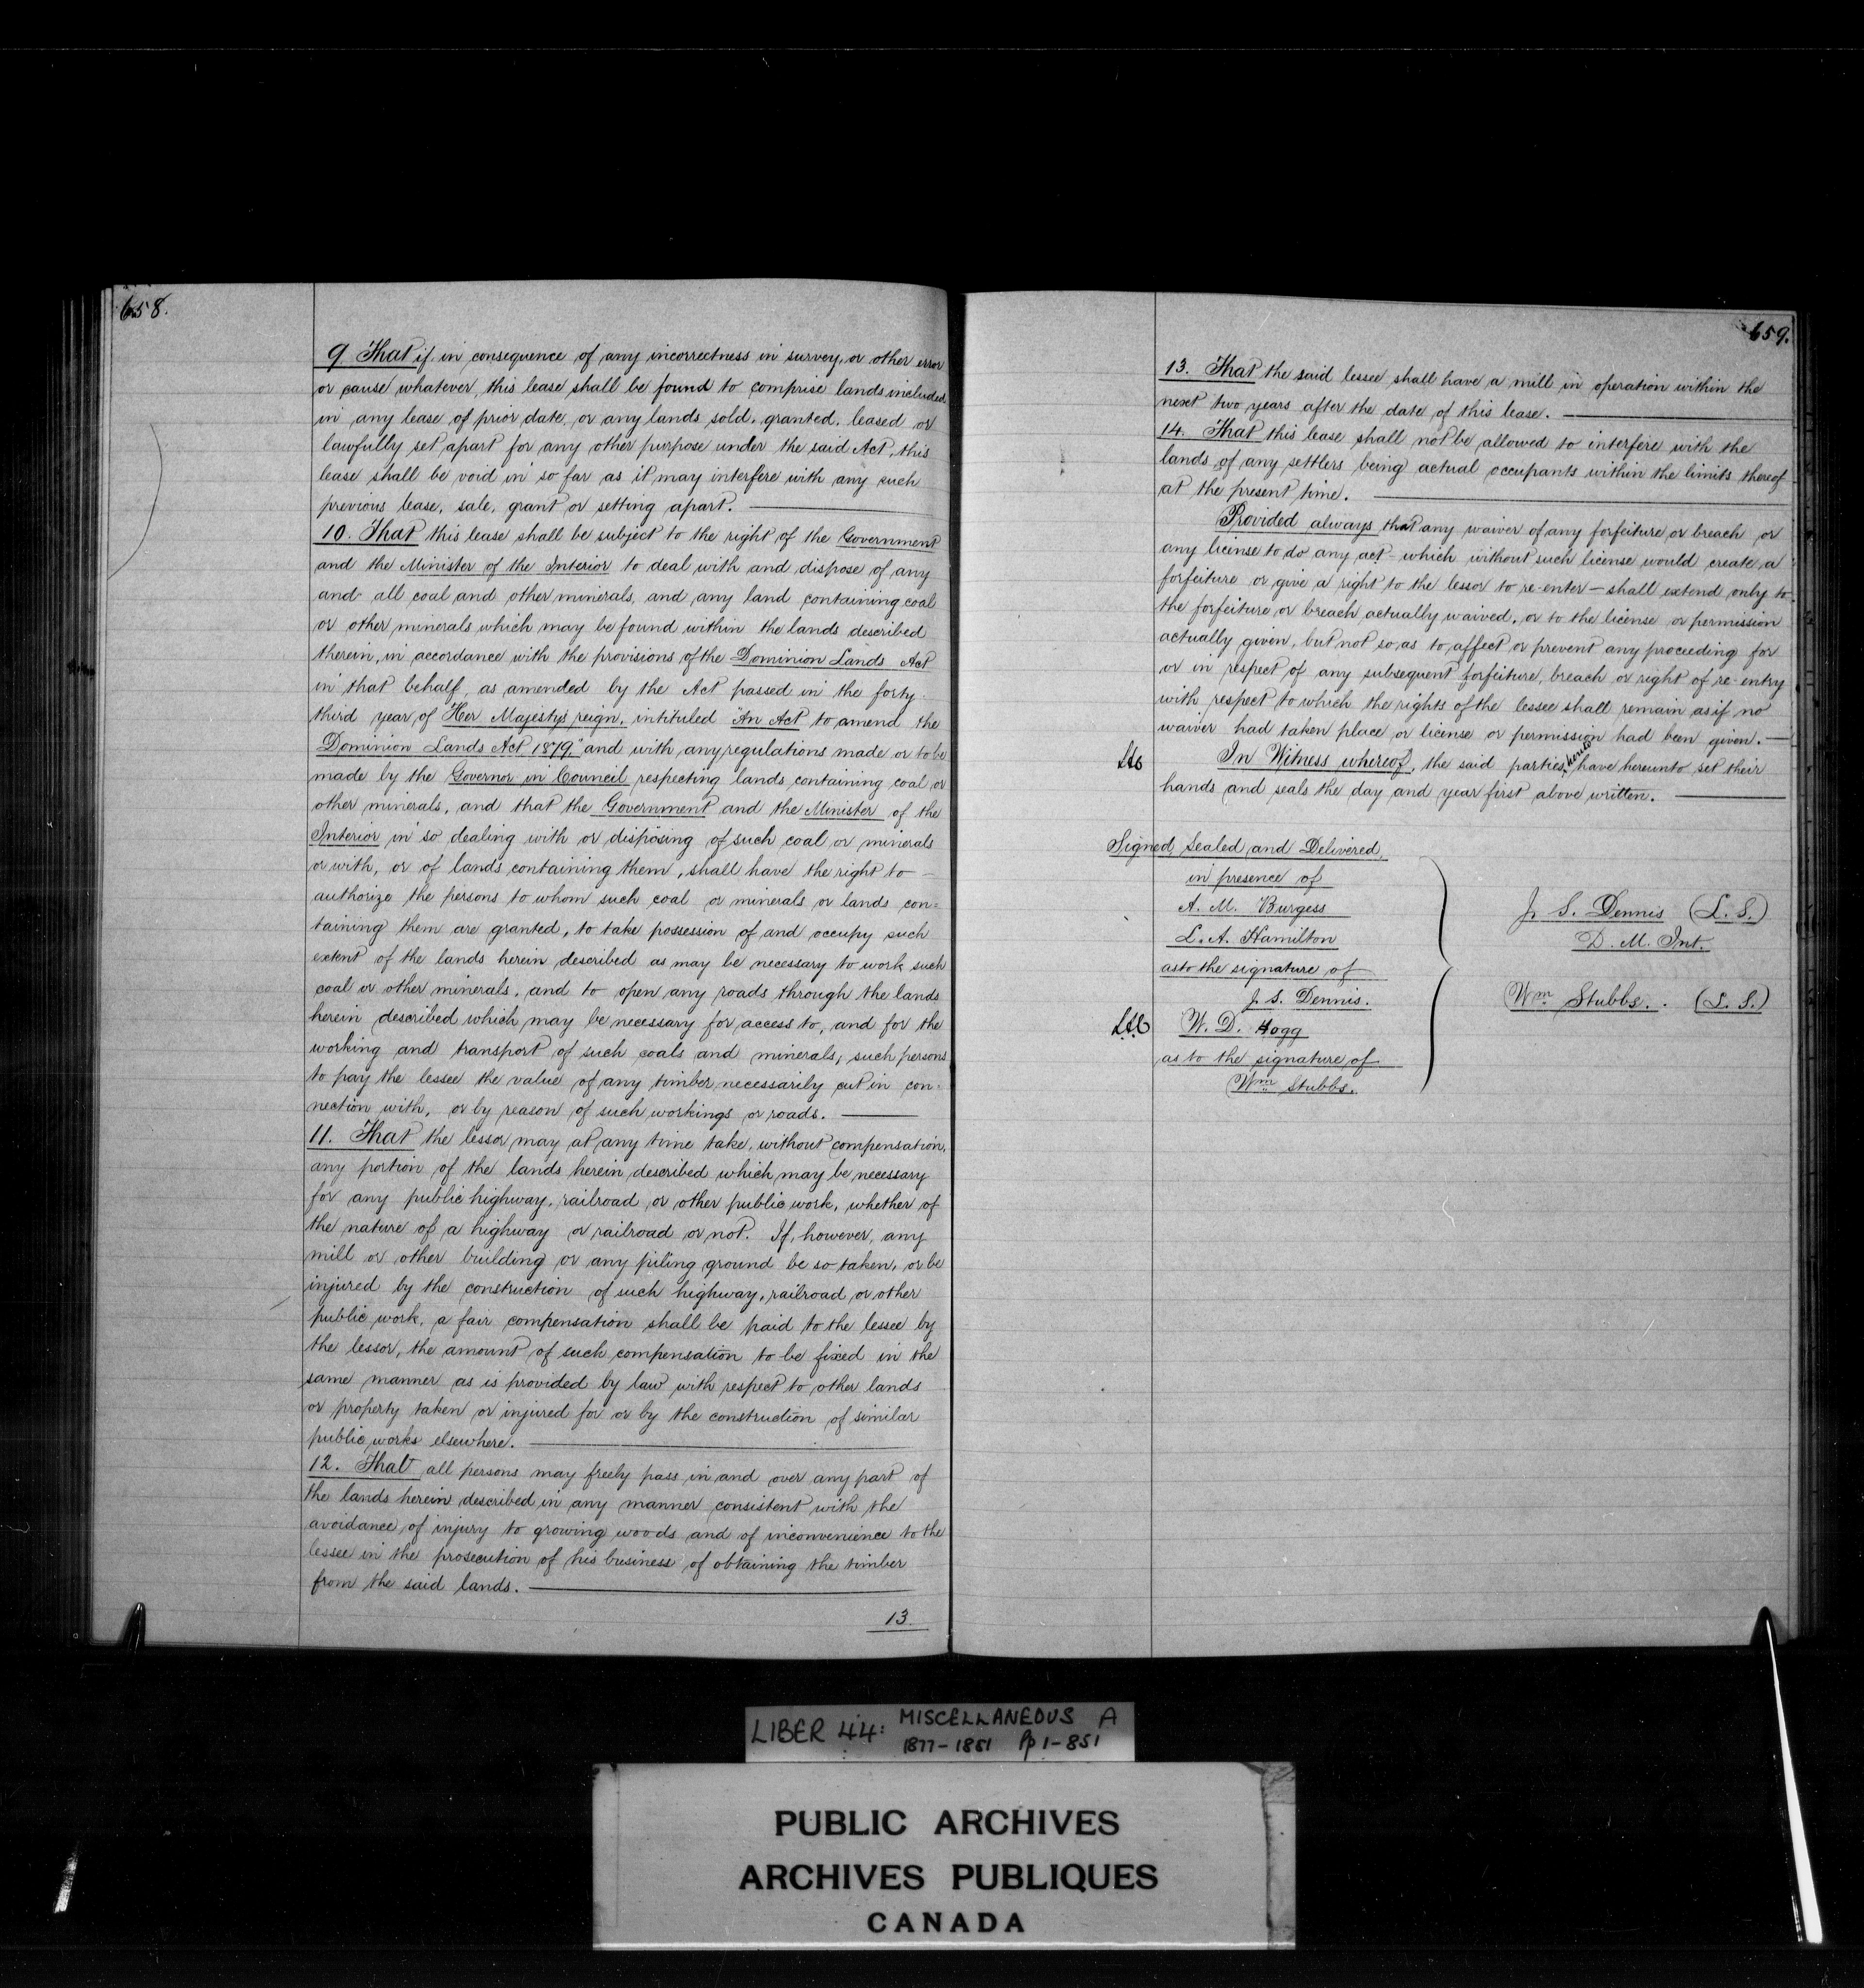 658.
9 That if in consequence of any incorrectness in survey, or other error
or cause whatever, this lease shall be found to comprise lands included
in any lease of prior date, or any lands sold, granted, leased or
lawfully set apart for any other purpose under the said Act, this
lease shall be void in so far as it may interfere with any such
previous lease, sale, grant or setting apart.
10. That this lease shall be subject to the right of the Government
and the Minister of the Interior to deal with and dispose of any
and all coal and other minerals, and any land containing coal
or other minerals which may be found within the lands described
therein, in accordance with the provisions of the Dominion Lands Act
in that behalf, as amended by the Act passed in the forty-
third year of Her Majesty's reign, intituled "An Act to amend the
Dominion Lands Act 1879," and with any regulations made or to be
made by the Governor in Council respecting lands containing coal or
other minerals, and that the Government and the Minister of the
Interior in so dealing with or disposing of such coal or minerals
or with, or of lands containing them, shall have the right to
authorize the persons to whom such coal or minerals or lands con=
taining them are granted, to take possession of and occupy such
extent of the lands herein described as may be necessary to work such
coal or other minerals, and to open any roads through the lands
herein described which may be necessary for access to, and for the
working and transport of such coals and minerals, such persons
to pay the lessee the value of any timber necessarily cut in con-
nection with, or by reason of such workings or roads.
11. That the lessor may at any time take, without compensation,
any portion of the lands herein described which may be necessary
for any public highway, railroad or other public work, whether of
the nature of a highway or railroad or not. If, however, any
mill or other building or any piling ground be so taken, or be
injured by the construction of such highway, railroad or other
public work, a fair compensation shall be paid to the lessee by
the lessor, the amount of such compensation to be fixed in the
same manner as is provided by law with respect to other lands
or property taken or injured for or by the construction of similar
public works elsewhere.
12. That all persons may freely pass in and over any part of
the lands herein described in any manner consistent with the
avoidance of injury to growing woods and of inconvenience to the
lessee in the prosecution of his business of obtaining the timber
from the said lands.
13.
659.
13. That the said lessee shall have a mill in operation within the
next two years after the date of this lease.
14. That this lease shall not be allowed to interfere with the
lands of any settlers being actual occupants within the limits thereof
at the present time.
Provided always that any waiver of any forfeiture or breach or
any license to do any act - which without such license would create a
forfeiture or give a right to the lessor to re-enter - shall extend only to
the forfeiture or breach actually waived, or to the license or permission
actually given, but not so as to affect or prevent any proceeding for
or in respect of any subsequent forfeiture, breach or right of re-entry
with respect to which the rights of the lessee shall remain as if no
waiver had taken place or license or permission had been given.
In Witness whereof, the said parties hereto have hereunto set their
hands and seals the day and year first above written.
Signed, Sealed and Delivered,
in presence of
A. M. Burgess
L. A. Hamilton
as to the signature of
J. S. Dennis.
W. D. Hogg
as to the signature of
Wm Stubbs.
J. S. Dennis (L. S.)
D. M. Int.
Wm Stubbs. (L. S.)
LIBER 44: MISCELLANEOUS A
1877-1881 Pp 1-851
PUBLIC ARCHIVES
ARCHIVES PUBLIQUES
CANADA